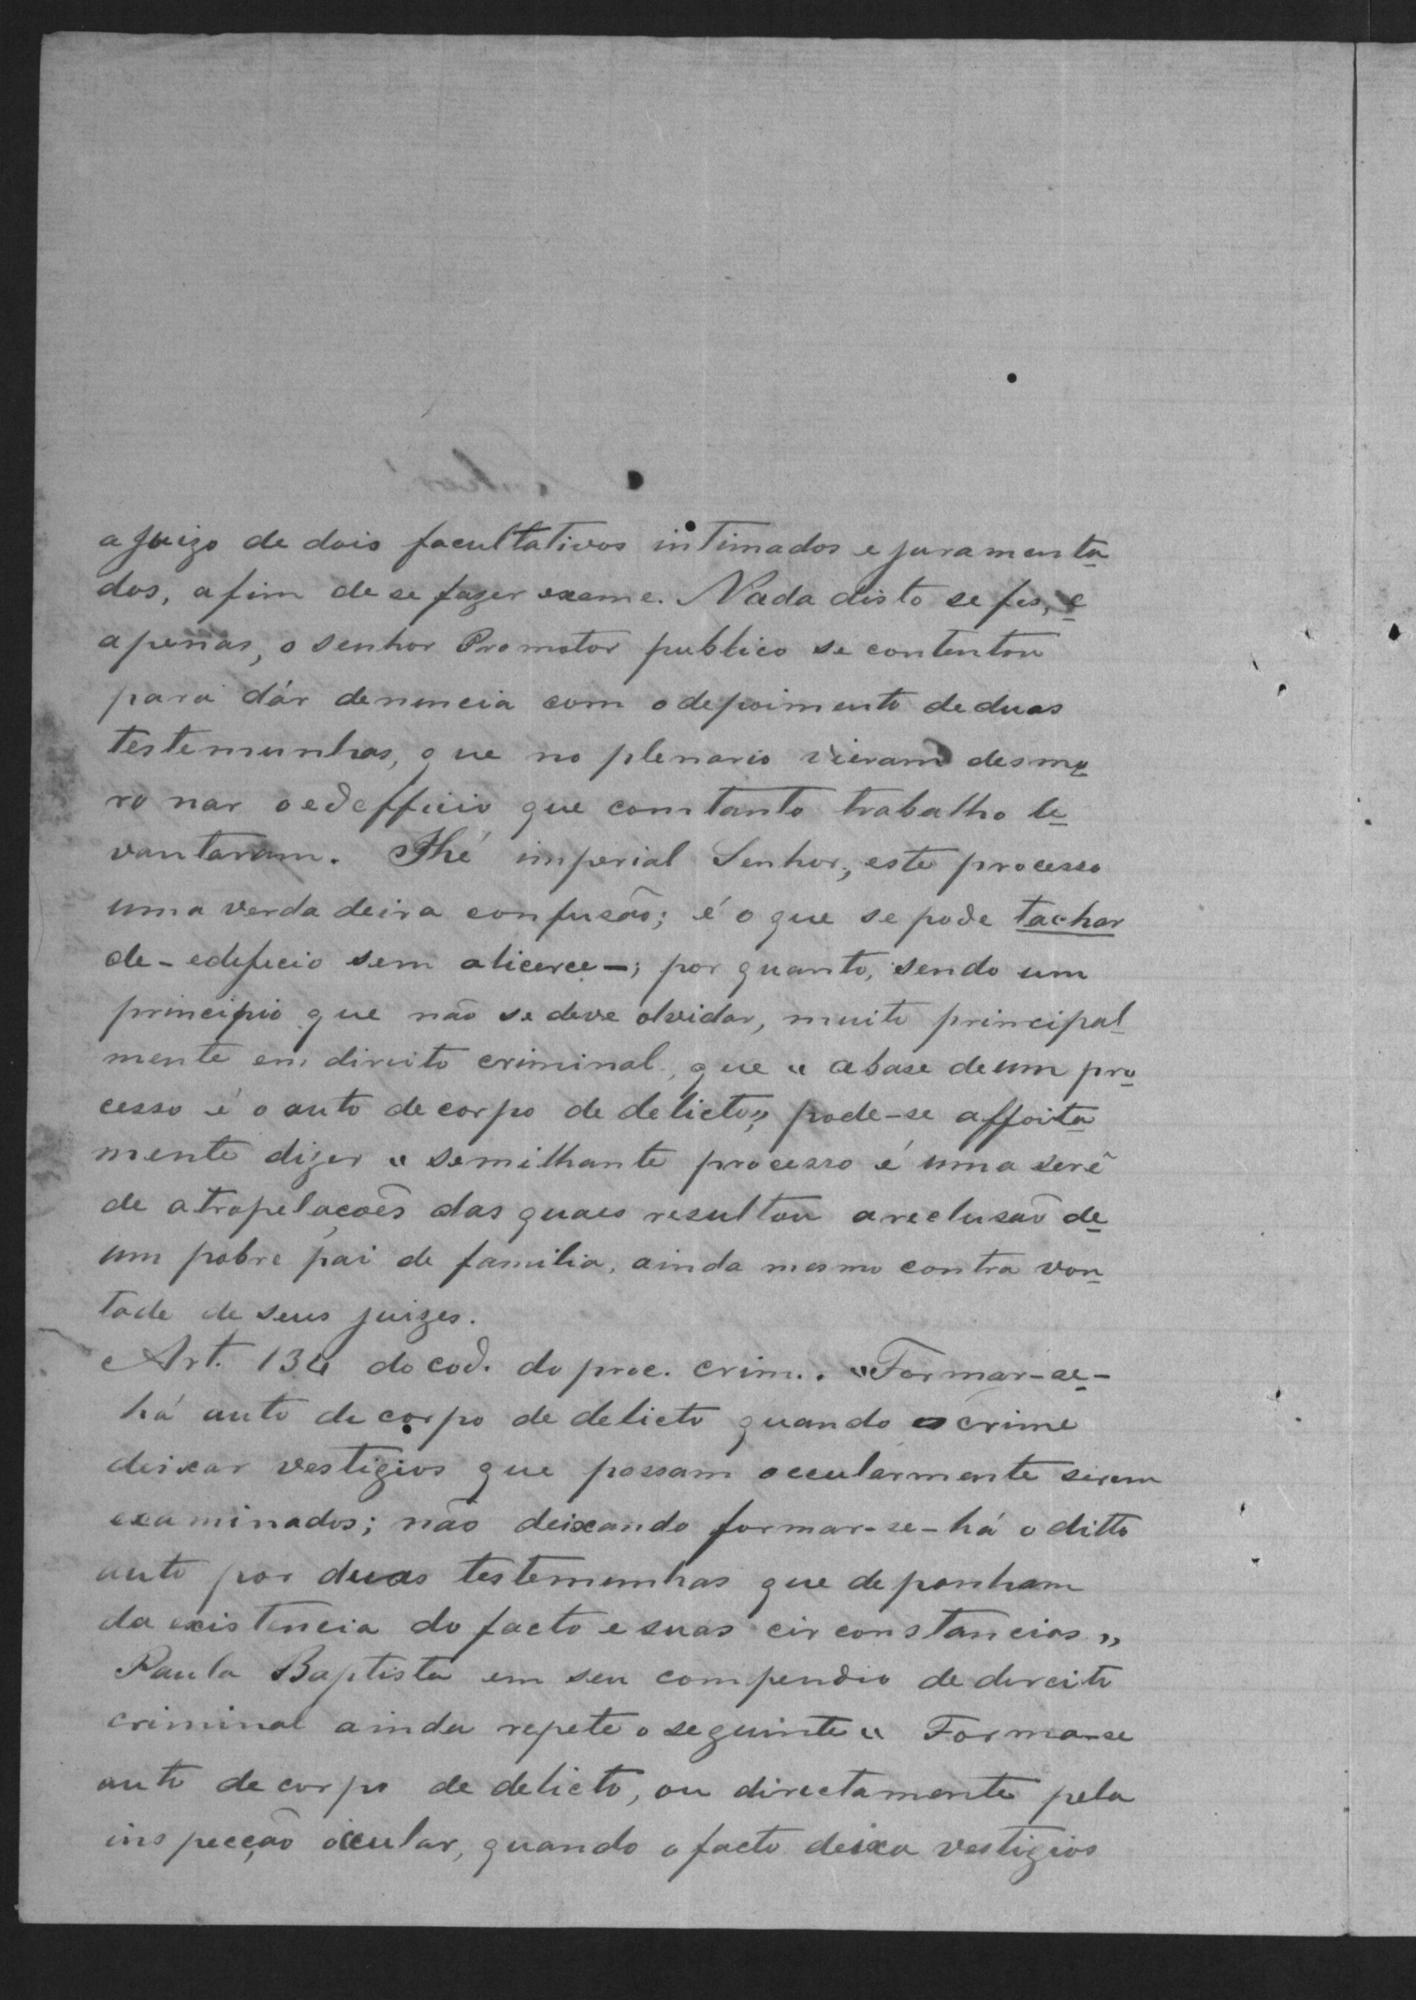 a juizo de dois facultativos intimados e juramenta
dos, afim de se fazer exame. Nada disto se fes, e
apenas, o senhor Promotor publico se contentou
para dár denuncia com o depoimento de duas
testemunhas, que no plenario vieram desmo
ronar o edefficio que com tanto trabalho le
vantaram. Hé imperial Senhor, este processo
uma verdadeira confusão; é o que se pode tachar
de - edeficio sem alicerce -; por quanto, sendo um
principio que não se deve olvidar, muito principal
mente em direito criminal, que « a base de um pro
cesso é o auto de corpo de delicto» pode-se affoita
mente dizer « semilhante processo é uma serê
de atropelacões das quaes resultou a reclusão de
um pobre pai de familia, ainda mesmo contra von
tade de seus juizes.
Art. 134 do cod. do proc. crim.. «Formar-se-
há auto de corpo de delicto quando o crime
deixar vestigios que possam occularmente serem
examinados; não deixando formar-se-há o ditto
auto por duas testemunhas que deponham
da existencia do facto e suas circonstancias»
Paula Baptista em seu compendio de direito
criminal ainda repete o seguinte « Forma-se
auto de corpo de delicto, ou directamente pela
inspecção occular, quando o facto deixa vestigios